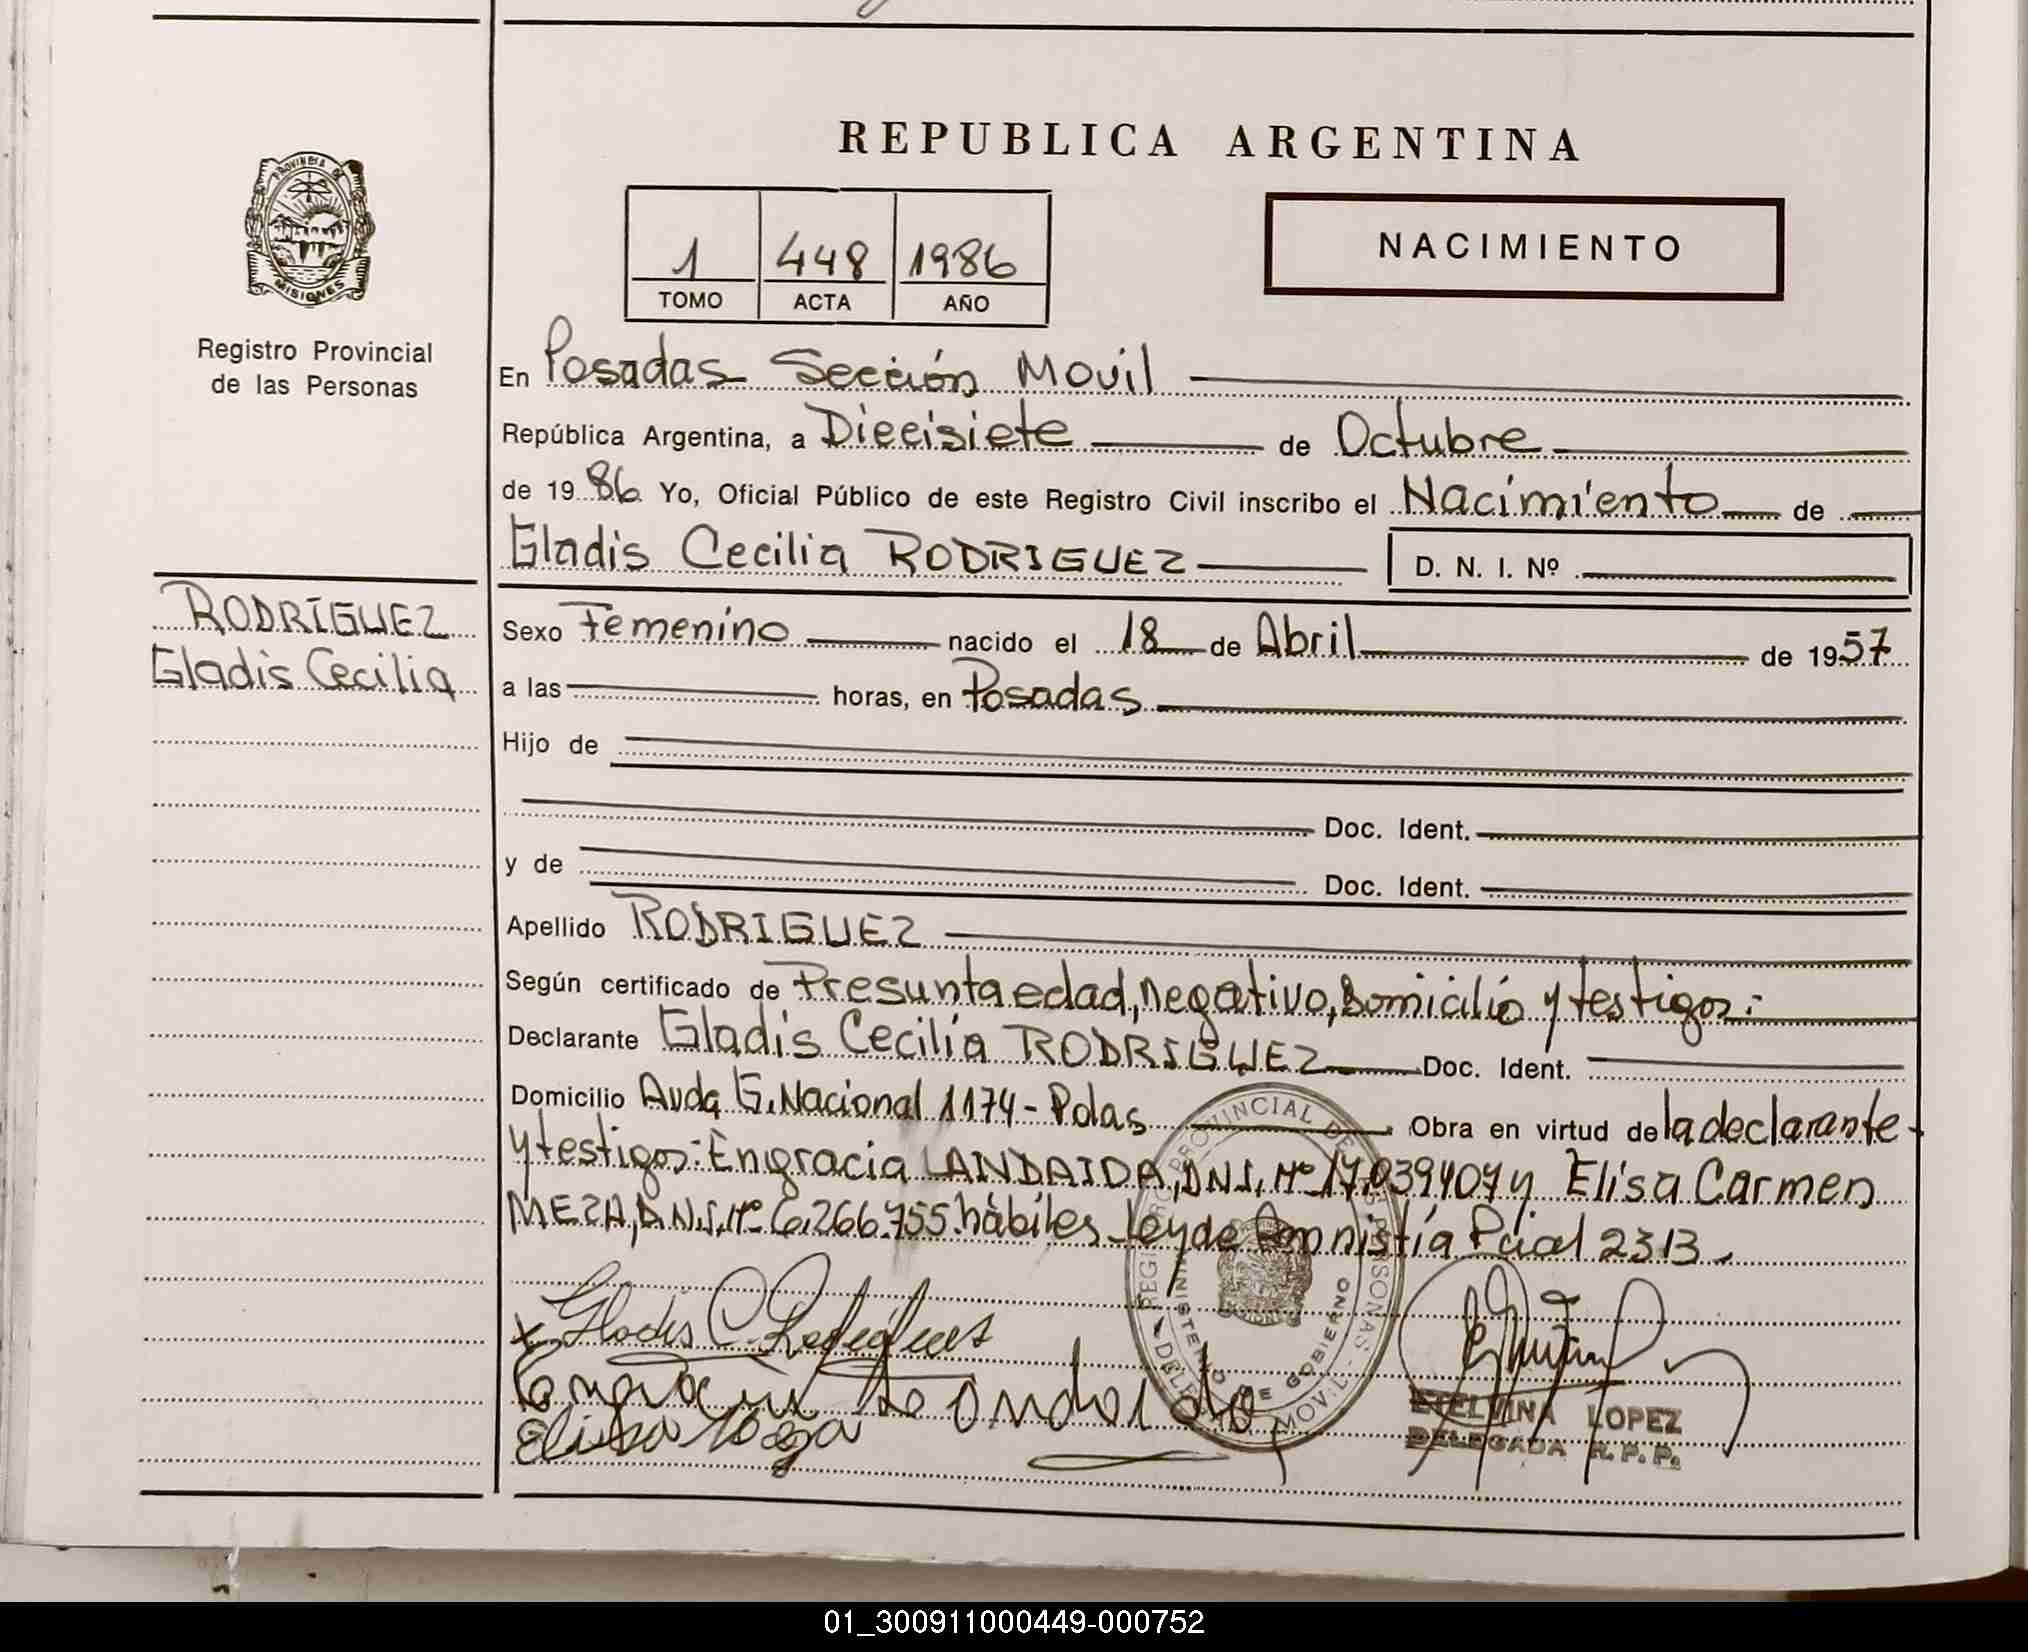 REPUBLICA ARGENTINA
PROVINCIA DE
MISIONES
Registro Provincial
de las Personas
1 448 1986
TOMO ACTA AÑO
NACIMIENTO
En Posadas Sección Movil
República Argentina, a Diecisiete de Octubre
de 1986 Yo, Oficial Público de este Registro Civil inscribo el Nacimiento de
Gladis Cecilia RODRIGUEZ D. N. I. Nº
RODRÍGUEZ
Gladis Cecilia
Sexo Femenino nacido el 18 de Abril de 1957
a las horas, en Posadas
Hijo de
Doc. Ident.
y de Doc. Ident.
Apellido RODRIGUEZ
Según certificado de Presunta edad, negativo, Domicilio y testigos:
Declarante Gladis Cecilia RODRIGUEZ Doc. Ident.
Domicilio Avda G. Nacional 1174 - Pdas Obra en virtud de la declarante
y testigos: Engracia LANDAIDA, DNI. Nº 17.039407 y Elisa Carmen
MEZA, D.N.I. Nº 6.266.755 hábiles Ley de Amnistía Pcial 2313.
Gladis C. Rodriguez
Elisa Meza
ETELVINA LOPEZ
DELEGADA R. P. P.
01_300911000449-000752